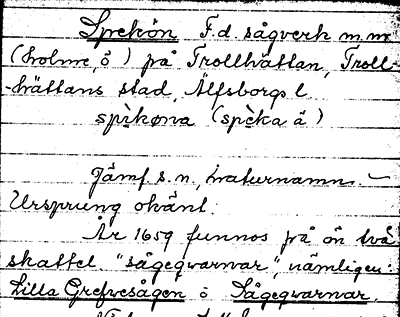 Spekön F.d. sågverk m.m
(holme, ö) på Trollhättan, Troll-
-hättans stad, Älfsborgs l.
spìkøna (spèka ä)
Jämf s. n., naturnamn. –
Ursprung okänt.
År 1659 funnos på ön två
skattel. "sågeqvarnar", nämligen:
Lilla Grefvesågen o Sågeqvarnar.